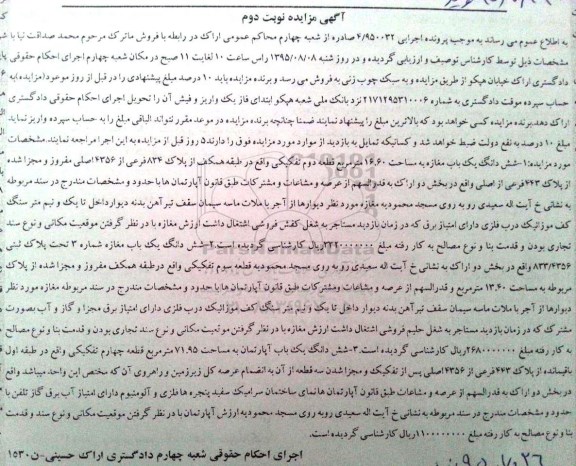 آگهی مزایده نوبت دوم
به اطلاع عموم می رساند به موجب پرونده اجرایی ۴/۹۵۰۰۳۲ صادره از شعبه چهارم محاکم عمومی اراک در رابطه با فروش ماترک مرحوم محمد صداقت نیا با
مشخصات ذیل توسط کارشناس توصیف و ارزیابی گردیده و در روز شنبه ۱۳۹۵/۰۸/۰۸ راس ساعت ۱۰ لغایت ۱۱ صبح در مکان شعبه چهارم اجرای احکام حقوقی
دادگستری اراک خیابان هپکو از طریق مزایده و به سبک چوب زنی به فروش می رسد و برنده مزایده باید ۱۰ درصد مبلغ پیشنهادی را در قبل از روز موعد(مزایده)به
حساب سپرده موقت دادگستری به شماره ۲۱۷۱۲۹۵۳۱۰۰۰۶ نزد بانک ملی شعبه هپکو ابتدای فاز یک واریز و فیش آن را تحویل اجرای احکام حقوقی دادگستری
اراک دهد.برنده مزایده کسی خواهد بود که بالاترین مبلغ را پیشنهاد نمایند ضمنا چنانچه برنده مزایده در موعد مقرر نتواند الباقی مبلغ را به حساب سپرده واریز نماید
مبلغ ۱۰ درصد به نفع دولت ضبط خواهد شد و کسانیکه تمایل به بازدید از موارد مورد مزایده فوق را دارند ۵ روز قبل از مزایده به این اجرا مراجعه نمایند.مشخصات
مورد مزایده:۱-شش دانگ یک باب مغازه به مساحت ۱۶.۶۰ مترمربع قطعه دوم تفکیکی واقع در طبقه همکف از پلاک ۸۳۴ فرعی از ۴۳۵۶ اصلی مفروز و مجزا شده
از پلاک ۴۴۳فرعی از اصلی واقع در بخش دو اراک به قدرالسهم از عرصه و مشاعات و مشترکات طبق قانون آپارتمان ها با حدود و مشخصات مندرج در سند مربوطه
به نشانی خ آیت اله سعیدی رو به روی مسجد محمودیه مغازه مورد نظر دیوارها از آجر با ملات ماسه سیمان سقف تیرآهن بدنه دیوارداخل تا یک و نیم متر سنگ
کف موزائیک درب فلزی دارای امتیاز برق که در زمان بازدید مستاجر به شغل کفش فروشی اشتغال داشت ارزش مغازه با در نظر گرفتن موقعیت مکانی و نوع سند
تجاری بودن و قدمت بنا و نوع مصالح به کار رفته مبلغ ریال کارشناسی گردیده است.۲-شش دانگ یک باب مغازه شماره ۳ تحت پلاک ثبتی
۸۳۳/۴۳۵۶ واقع در بخش دو اراک به نشانی خ آیت اله سعیدی رو به روی مسجد محمودیه قطعه سوم تفکیکی واقع درطبقه همکف مفروز و مجزا شده از پلاک
مربوطه به مساحت ۱۳.۴۰ مترمربع و قدرالسهم از عرصه و مشاعات ومشترکات طبق قانون آپارتمان ها با حدود و مشخصات مندرج در سند مربوطه مغازه مورد نظر
دیوارها از آجر با ملات ماسه سیمان سقف تیرآهن بدنه دیوار داخل تا یک و نیم متر سنگ کف موزائیک درب فلزی دارای امتیاز برق مجزا و گاز و آب بصورت
مشترک که در زمان بازدید مستاجر به شغل حلیم فروشی اشتغال داشت ارزش مغازه با در نظر گرفتن موقعیت مکانی و نوع سند تجاری بودن و قدمت بنا و نوع مصالح
به کار رفته مبلغ ریال کارشناسی گردیده است.۳-شش دانگ یک باب آپارتمان به مساحت ۷۱.۹۵مترمربع قطعه چهارم تفکیکی واقع در طبقه اول
باقیمانده از پلاک ۴۴۳فرعی از ۴۳۵۶اصلی پس از تفکیک و مجزا شدن سه قطعه از آن به انضمام عرصه کل زیرزمین و راهروی آن که مختص این واحد میباشد واقع
در بخش دو اراک به قدرالسهم از عرصه و مشاعات طبق قانون آپارتمان ها نمای ساختمان سرامیک سفید پنجره ها فلزی و آلومنیوم دارای امتیاز آب برق گاز تلفن با
حدود و مشخصات مندرج در سند مربوطه به نشانی خ آیت اله سعیدی روبه روی مسجد محمودیه ارزش آپارتمان با در نظر گرفتن موقعیت مکانی و نوع سند و قدمت
بنا و نوع مصالح به کار رفته مبلغ ریال کارشناسی گردیده است.
اجرای احکام حقوقی شعبه چهارم دادگستری اراک حسینی-ن۱۵۳۰